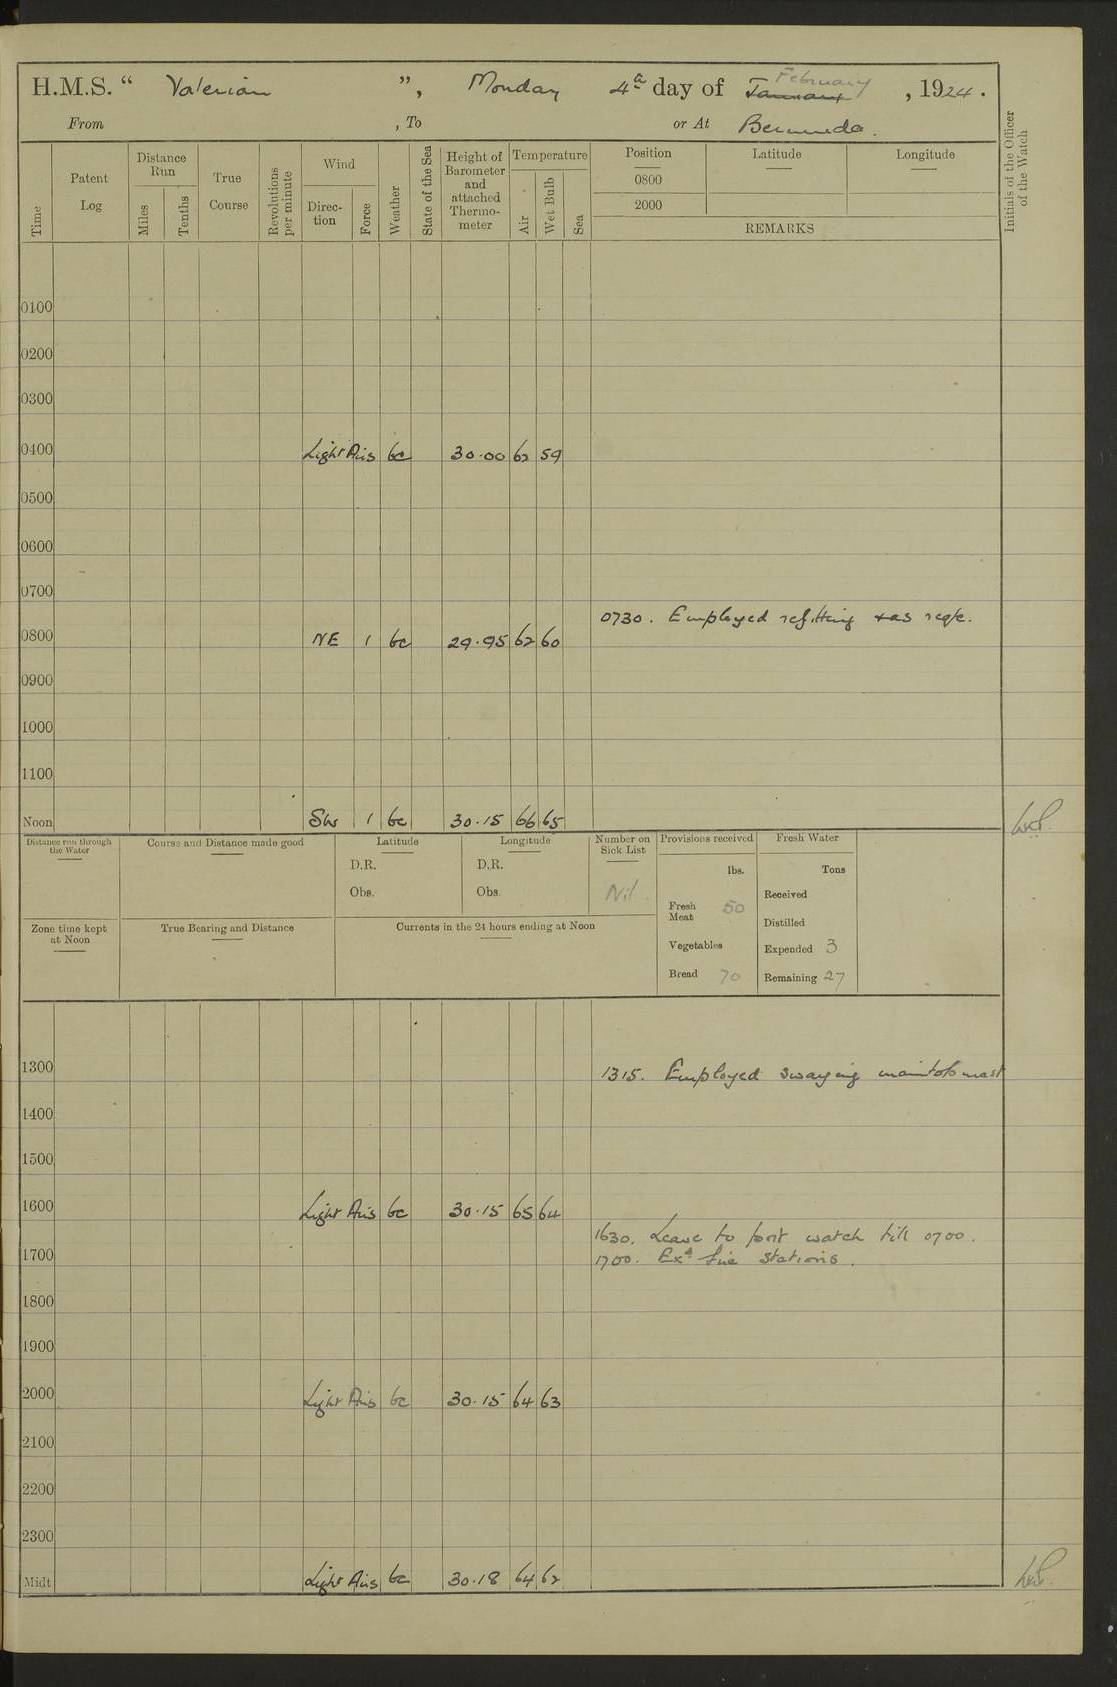 H.M.S. “ Valerian ”, Monday 4th day of January February, 1924.
From , To or At Bermuda.
Time
Patent Log
Distance Run
Miles
Tenths
True Course
Revolutions per minute
Wind
Direc-tion
Force
Weather
State of the Sea
Height of Barometer and attached Thermo-meter
Temperature
Air
Wet Bulb
Sea
Position Latitude Longitude
0800
2000
REMARKS
Initials of the Officer of the Watch
0100
0200
0300
0400 Light Airs bc 30.00 62 59
0500
0600
0700
0730. Employed refitting & as reqte.
0800 NE 1 bc 29.95 62 60
0900
1000
1100
Noon SW 1 bc 30.15 66 65
Distance run through the Water
Course and Distance made good
Latitude
D.R.
Obs.
Longitude
D.R.
Obs.
Number on Sick List
Nil
Provisions received
lbs.
Fresh Meat 50
Vegetables
Bread 70
Fresh Water
Tons
Received
Distilled
Expended 3
Remaining 27
Zone time kept at Noon
True Bearing and Distance
Currents in the 24 hours ending at Noon
1300
1315. Employed swaying maintopmast
1400
1500
1600 Light Airs bc 30.15 65 64
1630. Leave to port watch till 0700.
1700
1700. Exd fire stations.
1800
1900
2000 Light Airs bc 30.15 64 63
2100
2200
2300
Midt Light Airs bc 30.18 64 62